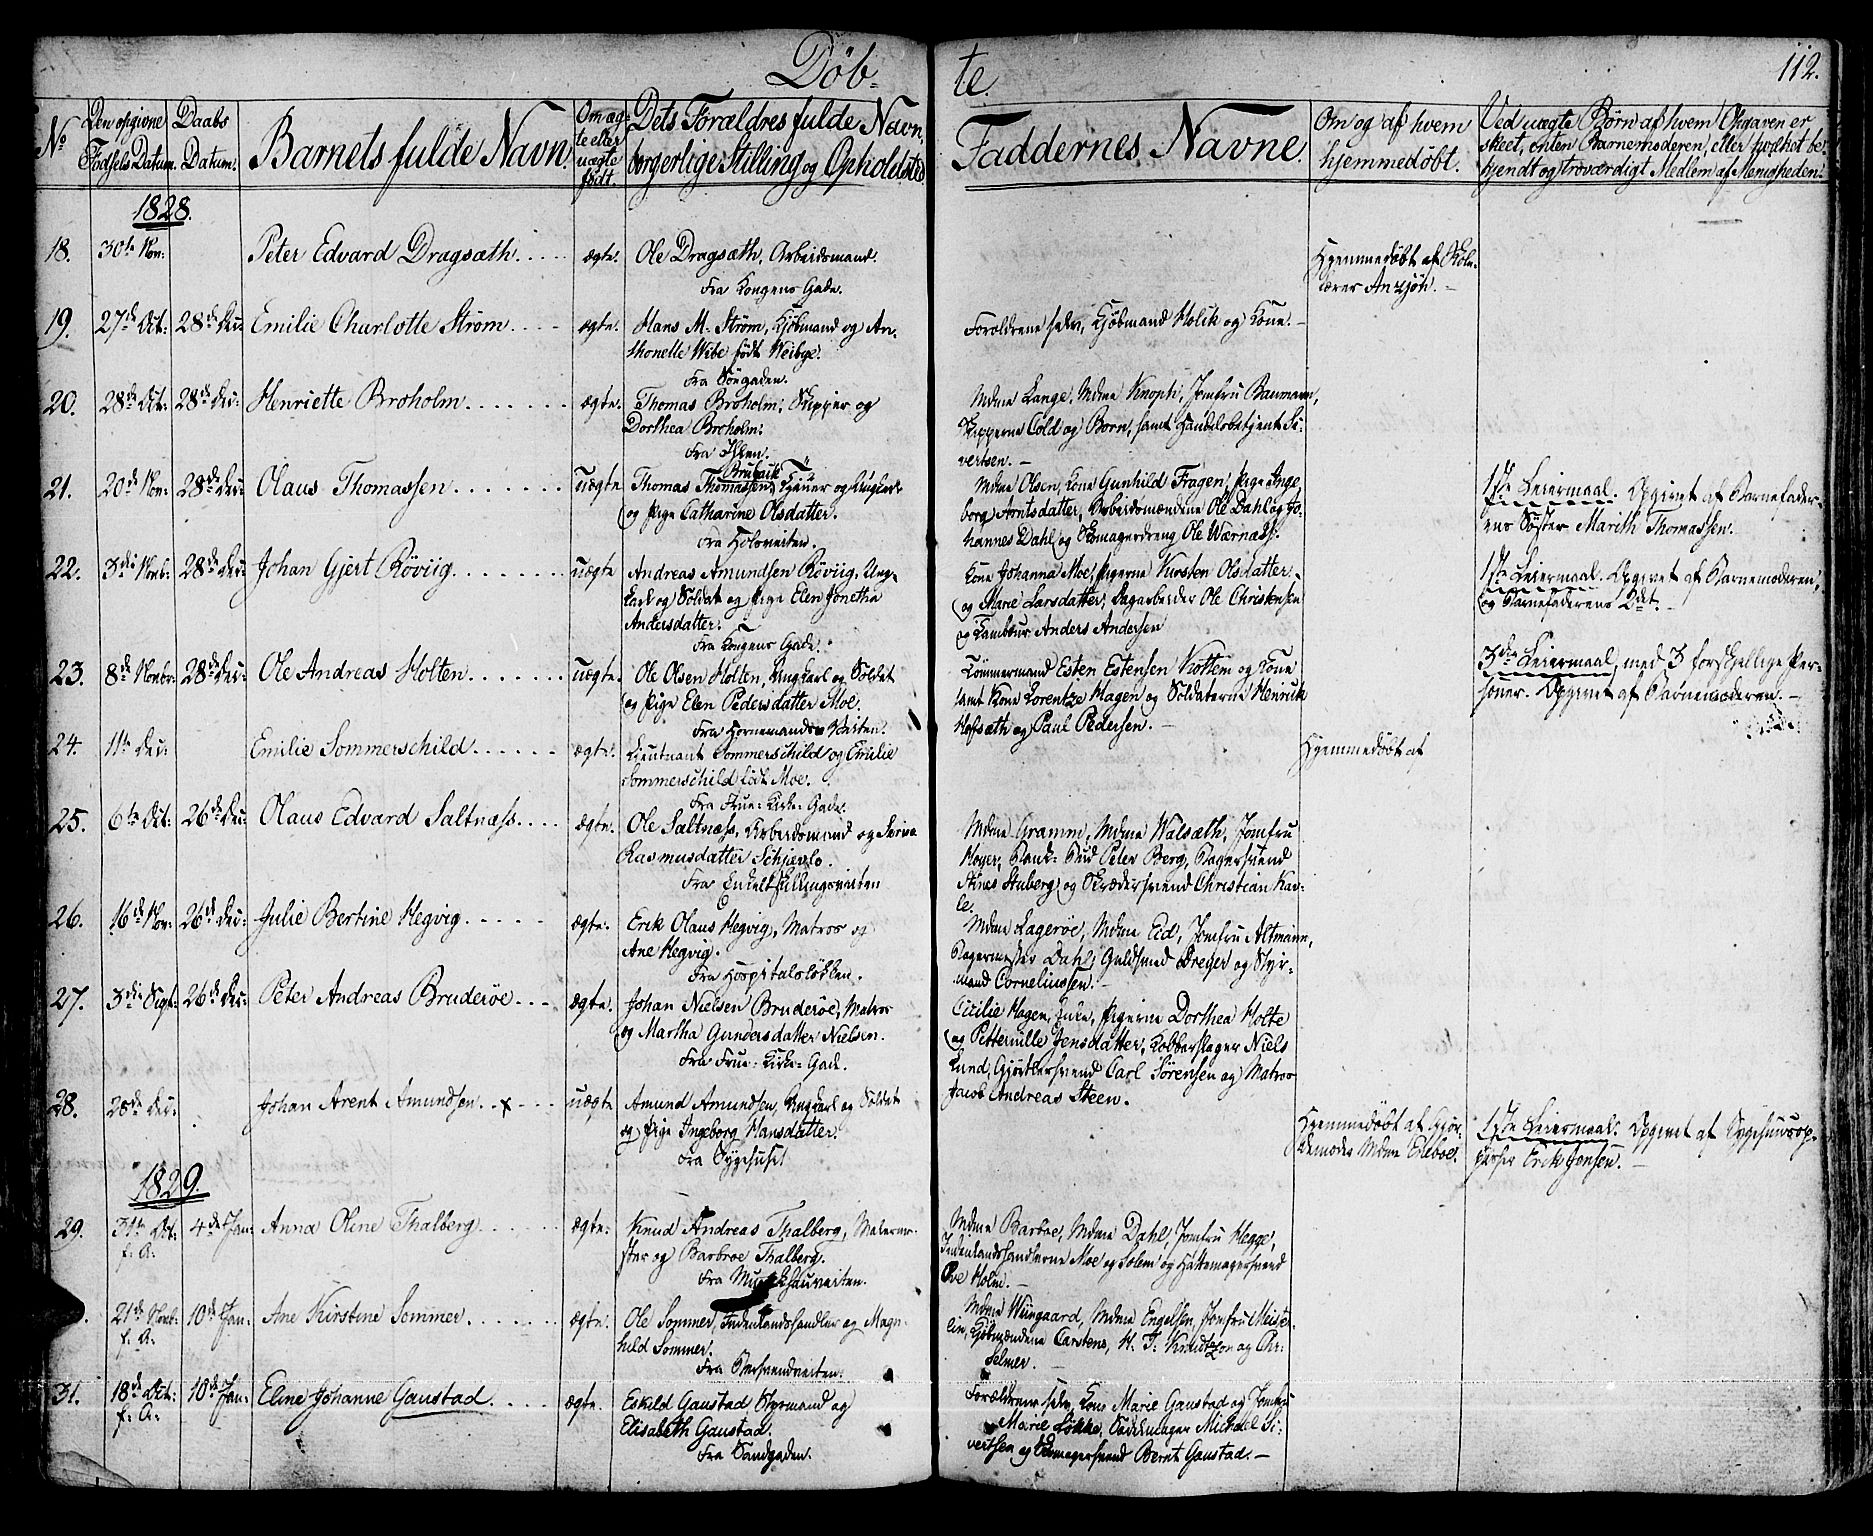 Døb-
te.
112.
No
Den opgivne
Fødsels Datum.
Daabs
Datum.
Barnets fulde Navn.
Om æg-
te eller
uægte
født.
Dets Forældres fulde Navn,
borgerlige Stilling og Opholdsted
Faddernes Navne.
Om og af hvem
hjemmedøbt.
Ved uægte Børn af hvem Opgaven er
skeet, enten Barnemoderen, eller hvilket be-
kjendt og troværdigt Medlem af Menigheden.
1828.
18. 30te Nov: Peter Edvard Dragsæth. ægte. Ole Dragsæth, Arbeidsmand.
Fra Kongens Gade.
Hjemmedøbt af
19. 27de Oct: 28de Dec: Emilie Charlotte Strøm. ægte. Hans M. Strøm, Kjøbmand og An-
thonette Wibe født Weibye.
Fra Søegaden.
Forældrene selv, Kjøbmand Holik og Kone.
20. 28de Oct: 28de Dec: Henriette Broholm. ægte. Thomas Broholm, Skipper og
Dorthea Broholm.
Fra Ihlen.
Mdme Lange, Mdme Knoph, Jomfru Baumann,
Skipperne Cold og Born, samt Handelsbetjent Si-
vertsen.
21. 20de Nov: 28de Dec: Olaus Thomassen. uægte Thomas Thomassen
og Pige Catharine Olsdatter.
Mdme Olsen, Kone Gunhild Fragen, Pige Inge-
borg Arntsdatter, Arbeidsmændene Ole Dahl og Jo-
hannes Dahl og Skomagerdreng Ole Wærnæss.
1ste Leiermaal. Opgivet af Barnefader-
ens Søster Marith Thomassen.
22. 3die Novb: 28de Dec: Johan Gjert Røviig. uægte Andreas Amundsen Røviig, Ung-
karl og Soldat og Pige Elen Jonetha
Andersdatter.
Fra Kongens Gade.
Kone Johanna Moe, Pigerne Kirsten Olsdatter
og Marie Larsdatter, Dagarbeider Ole Christensen
og Tambour Anders Andersen
1ste Leiermaal. Opgivet af Barnemoderen,
og Barnefaderen
23. 8de Novbr: 28de Dec: Ole Andreas Holten. uægte. Ole Olsen Holten, Ungkarl og Soldat
og Pige Elen Pedersdatter Moe.
Fra Hornemands Veiten.
Tømmermand Esten Estensen Kottem og Kone
samt Kone Lorentze Hagen og Soldaterne Henrik
Hofsæth og Paul Pedersen.
3die Leiermaal, med 3 forskjellige Per-
soner. Opgivet af Barnemoderen.
24. 11te Dec: Emilie Sommerschild. ægte. Lieutnant Sommerschild og Emilie
Sommerschild født Moe.
Fra Frue-Kirke-Gade.
Hjemmedøbt af
25. 6te Oct: 26de Dec: Olaus Edvard Saltnæss. ægte. Ole Saltnæss, Arbeidsmand og
Rasmusdatter Schjevlo.
Fra Enkeltskillingsveiten
Mdme Gramm, Mdme Walsæth, Jomfru
Hoyer, Bank-Bud Peter Berg, Bagersvend
Stuberg og Skrædersvend Christian Kav-
le.
26. 16de Nov: 26de Dec: Julie Bertine Hegvig. ægte. Erik Olaus Hegvig, Matros og
Ane Hegvig.
Fra Hospitalsløkken.
Mdme Lagerøe, Mdme Eid, Jomfru Altmann,
Bagermester Dahl, Guldsmed Dreyer og Styr-
mand Corneliussen.
27. 3die Sept: 26de Dec: Peter Andreas Bruderøe. ægte. Johan Nielsen Bruderøe, Matros
og Martha Gundersdatter Nielsen.
Fra Frue-Kirke-Gade.
Cicilie Hagen, Enke, Pigerne Dorthea Holte
og Petternille Jensdatter, Kobberslager Niels
Lund, Gjørtlersvend Carl Sørensen og Matros
Jacob Andreas Steen.
28. 28de Dec: Johan Arent Amundsen. x uægte Amund Amundsen, Ungkarl og Soldat
og Pige Ingeborg Hansdatter.
Fra Sygehuset
Hjemmedøbt af Gjor-
demoder Mdme
1ste Leiermaal. Opgivet af Sygehuusop-
passer Erik Jonsen.
1829.
29. 31te Oct: f. A. 4de Jan: Anna Oline Thalberg. ægte. Knud Andreas Thalberg, Malerme-
ster og Barbroe Thalberg.
Fra
Mdme Barboe, Mdme Dahl, Jomfru Hegge,
Indenlandshandlerne Moe og Solem og Hattemagersvend
Ove Holm.
21de Novb: f. A. 10de Jan: Ane Kirstine Sommer. ægte. Ole Sommer, Indenlandshandler og Magn-
hild Sommer.
Fra
Mdme Wiingaard, Mdme Engelsen, Jomfru Meister-
lin, Kjøbmændene Carstens, H. T. Knudtzon og Chr.
Selmer.
31. 18de Oct: f. A. 10de Jan: Eline Johanne Gaustad. ægte. Eskild Gaustad Styrmand og
Elisabeth Gaustad.
Fra Sandgaden.
Forældrene selv, Kone Marie Gaustad og Jomfru
Marie Løkke, Sadelmager Michael Si-
vertsen og Skomagersvend Bernt Gaustad.